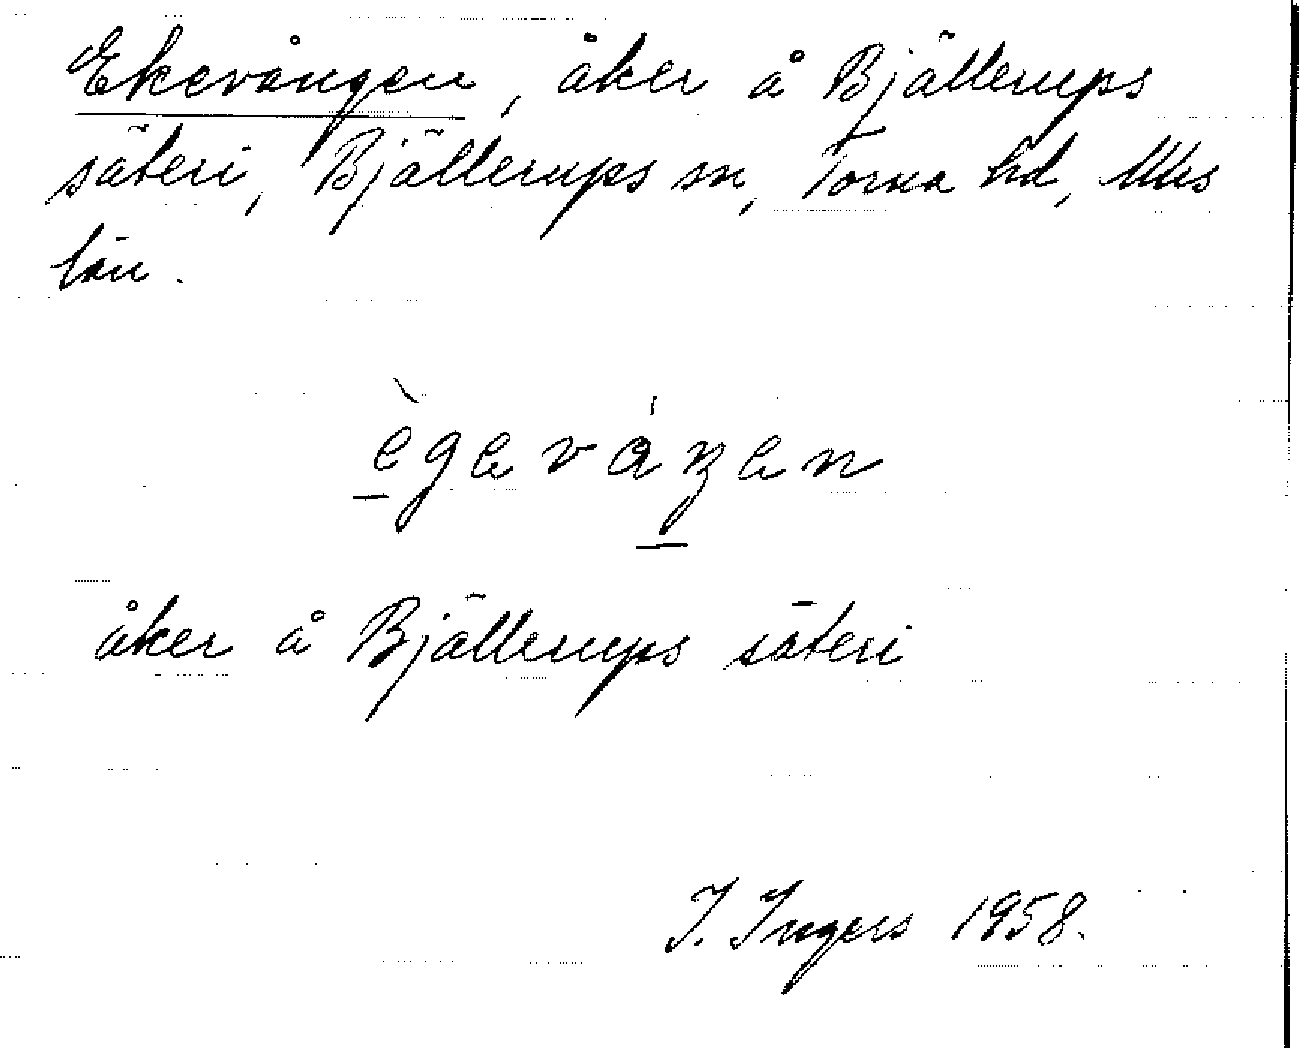 Ekevången, åker å Bjällerups
säteri, Bjällerups sn, Torna hd, Mhs
län.
ègeváŋen
åker å Bjällerups säteri
I. Ingers 1958.